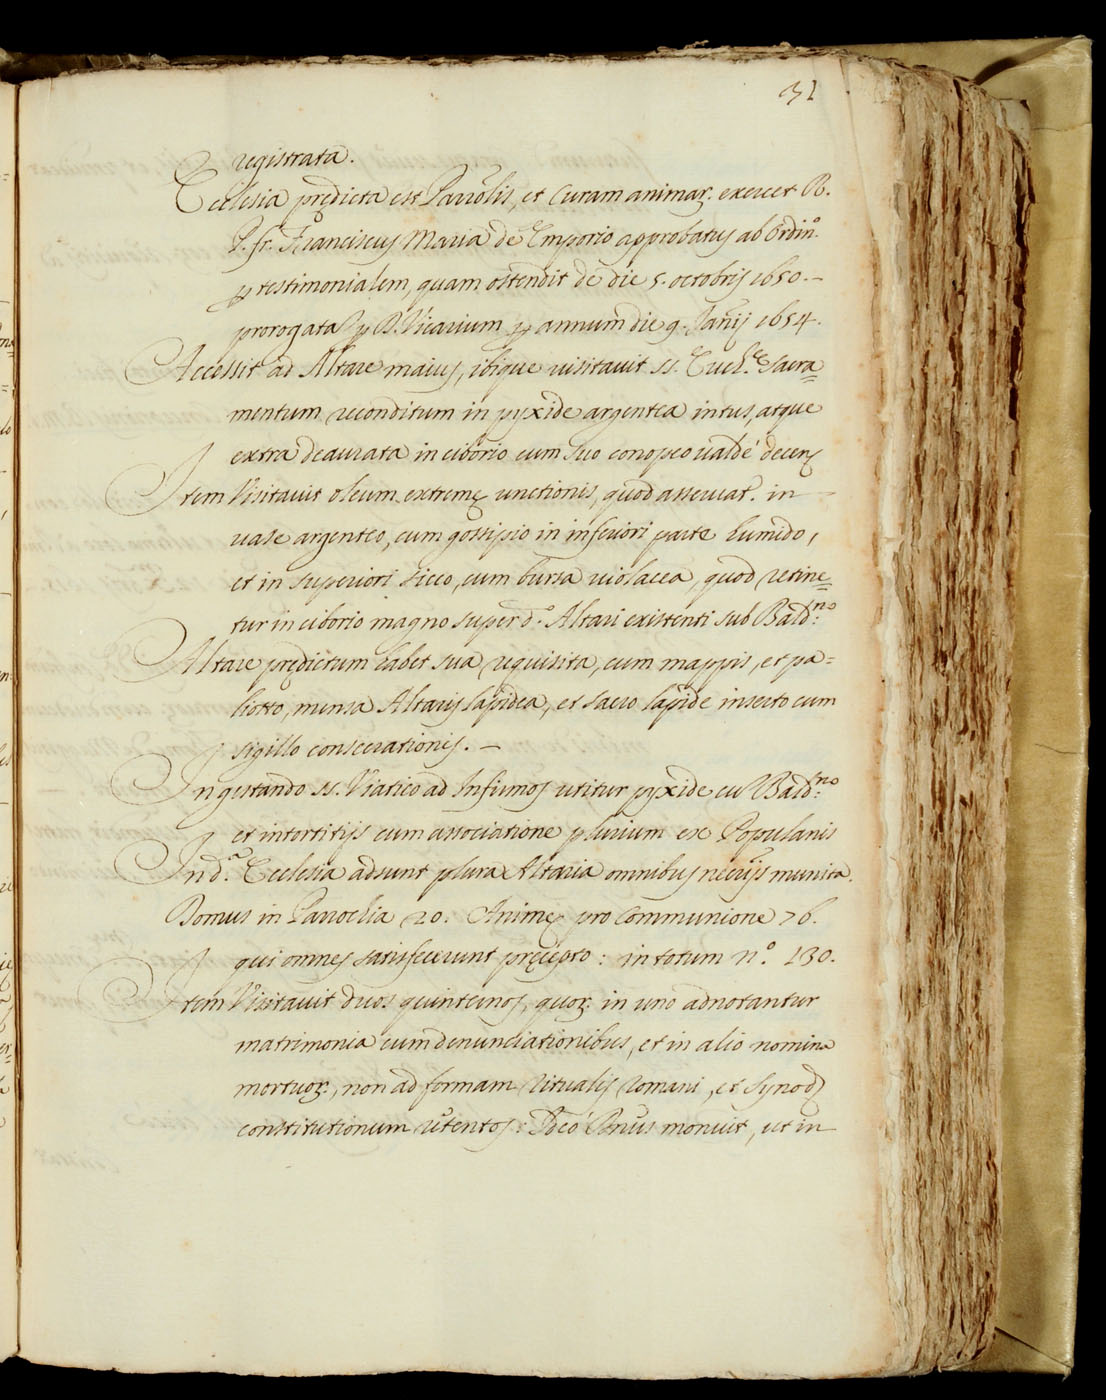 31
registrata.
Ecclesia prędicta est Parrolis, et Curam animar. exercet R.
P. fr. Franciscus Maria de Emporio approbatus ab Ordin.º
p testimonialem, quam ostendit de die 5. octobris 1650.—
prorogata p D. Vicarium p annum die 9. Janij 1654.
Accessit ad Altare maius, ibique visitavit ss. Euch.ę Sacra=
mentum reconditum in pyxide argentea intus, atque
extra deaurata in ciborio cum suo conopeo valdé decenę
Item Visitavit oleum extremę unctionis, quod asservat. in
vase argenteo, cum gossipio in inferiori parte humido,
et in superiori sicco, cum bursa violacea, quod retine=
tur in ciborio magno super d.º Altari existenti sub Bald.no
Altare prędictum habet sua requisita, cum mappis, et pa=
liotto, mensa Altaris lapidea, et sacro lapide inserto cum
sigillo consecrationis. —
In gestando ss. Viatico ad Infirmos utitur pyxide cu Bald.no
et intortitijs cum associatione plurium ex Popularis
In d.a Ecclesia adsunt plura Altaria omnibus necrijs munita.
Domus in Parrochia 20. Animę pro Communione 76.
qui omnes satisfecerunt pręcepto: in totum n.º 130.
Item Visitavit duos quinternos, quor. in uno adnotantur
matrimonia cum denunciationibus, et in alio nomina
mortuor., non ad formam Ritualis Romani, et Synod
constitutionum retentos: Idcó Rmus monuit, ut in